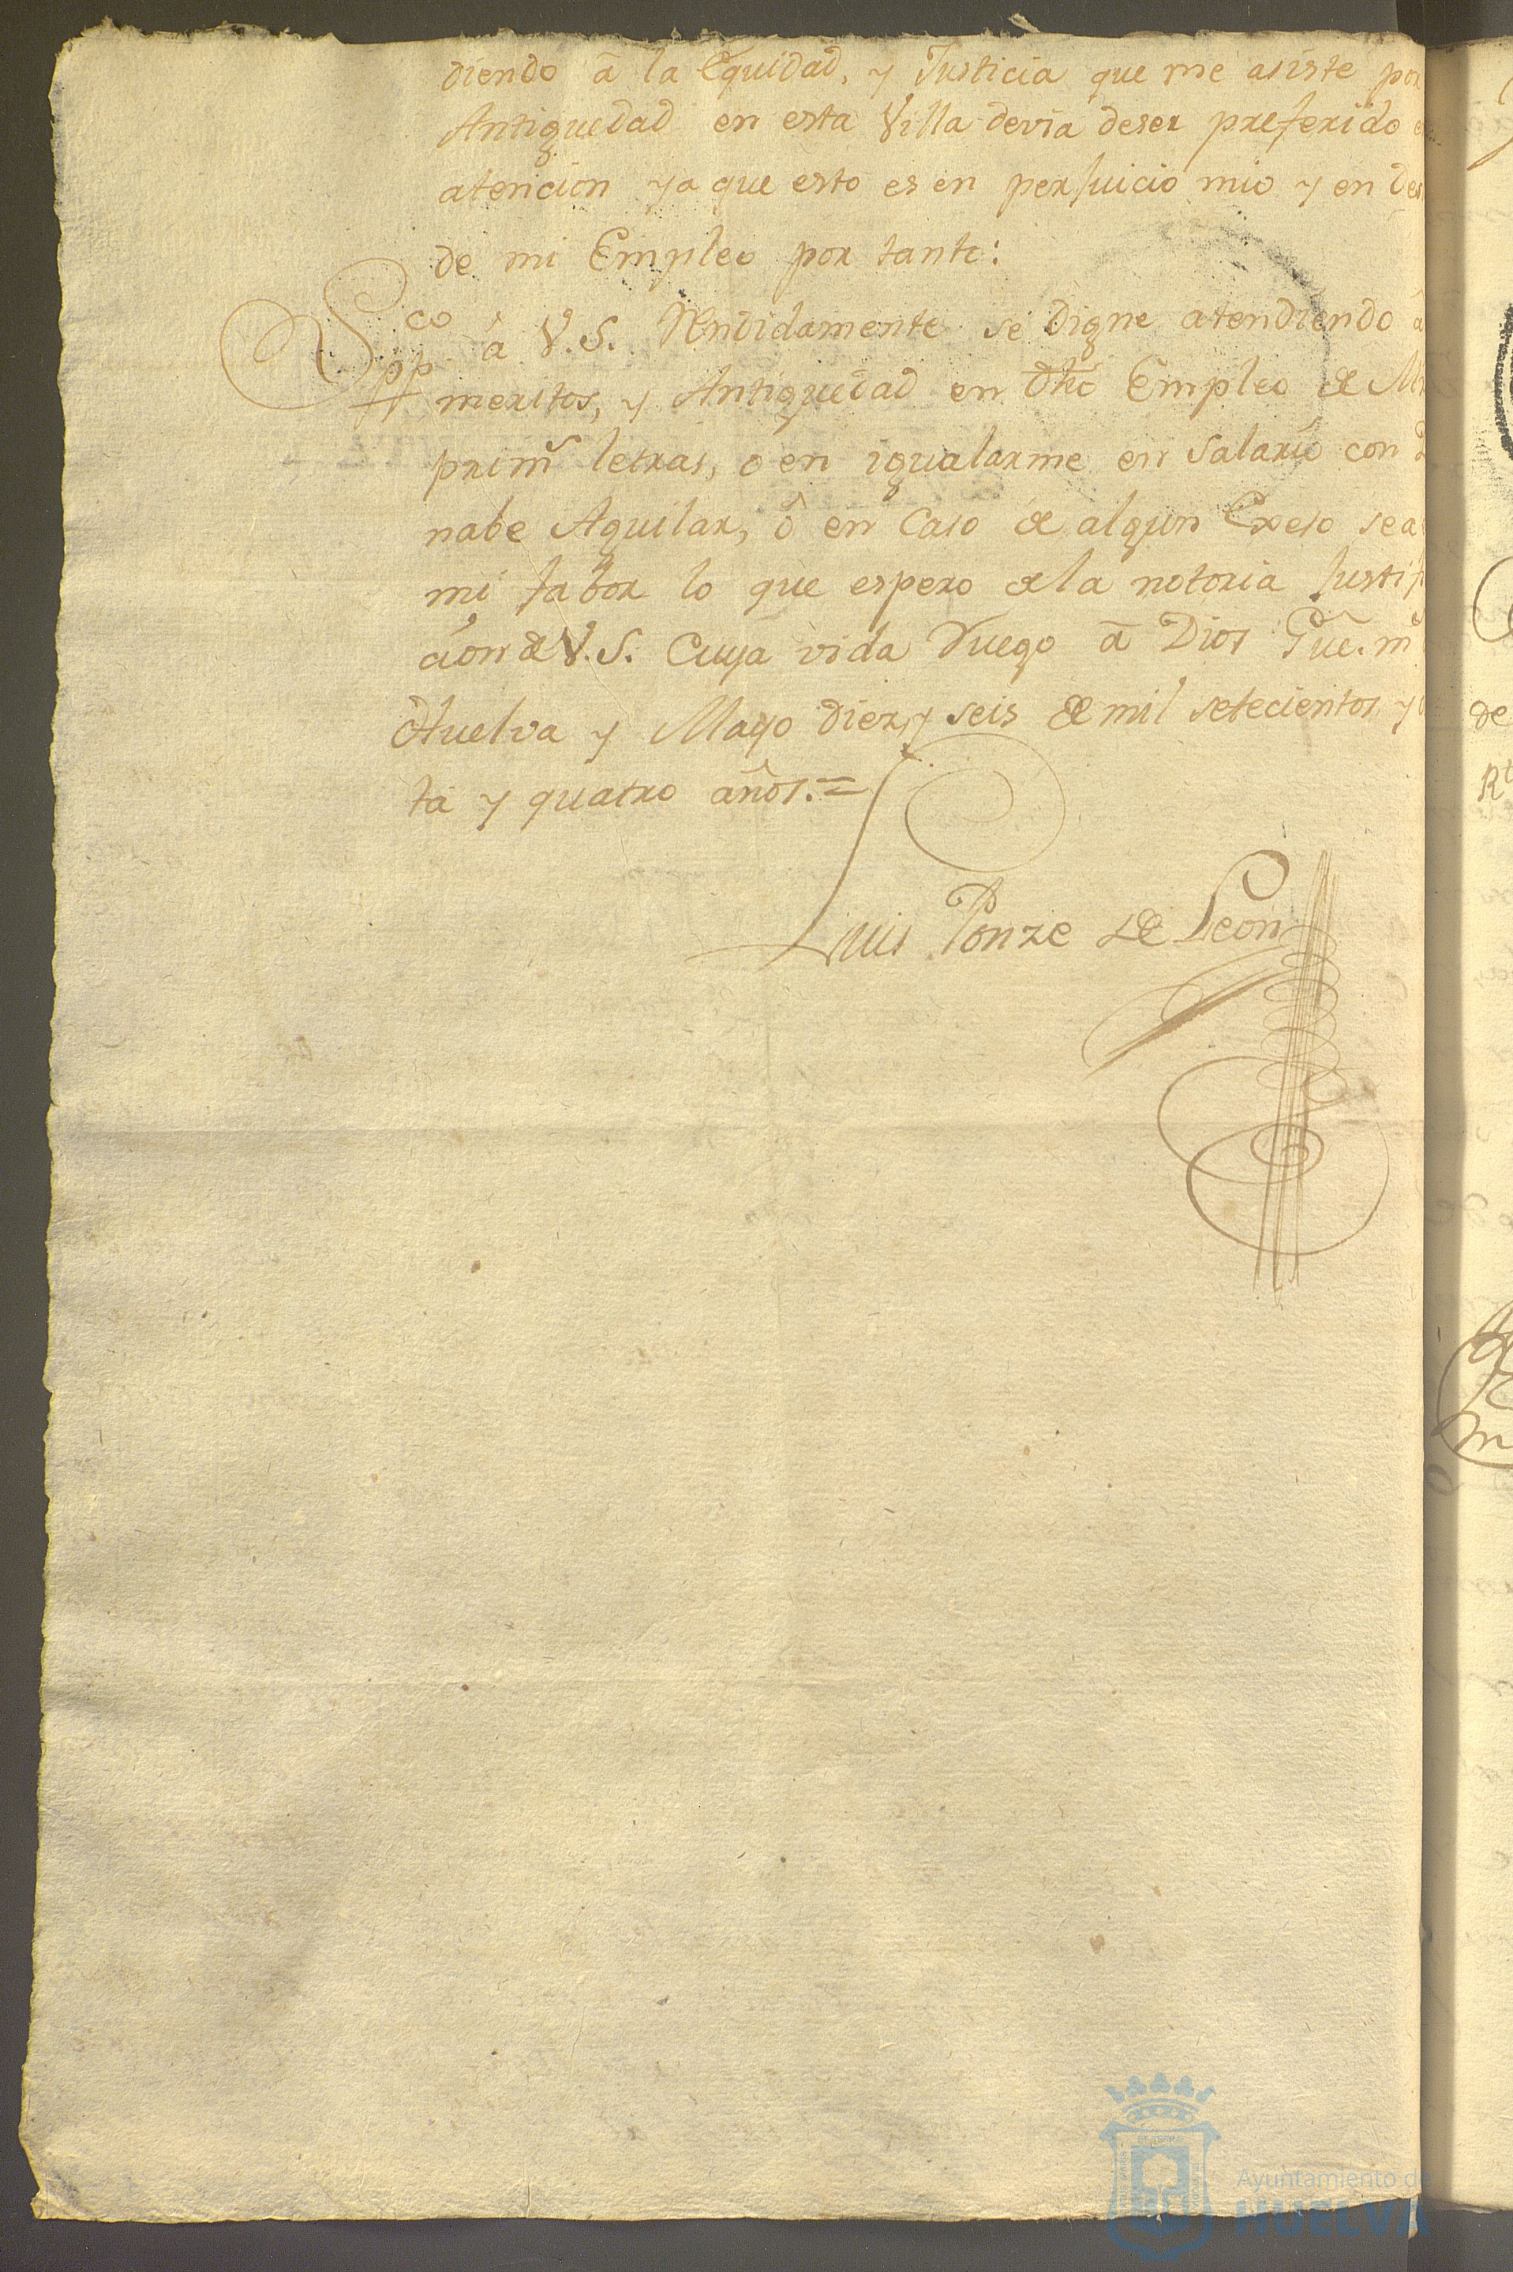 diendo â la Equidad, y Justicia que me asiste por
Antiguedad en esta Villa devia deser preferido
atencion ya que esto es en perjuicio mio y en
de mi Empleo por tanto:
Suppco â V.S. Rendidamente se digne atendiendo â
meritos, y Antiguedad en dho Empleo de
primˢ letras, o en igualarme en Salario con
nabe Aguilar, ô en Caso de algun Exeso sea
mi fabor lo que espero de la notoria Justif
cion de V.S. Cuya vida Ruego â Dios Gue. mˢ
Huelva y Mayo diez y seis de mil setecientos y
ta y quatro años.=
Luis Ponze de Leon
Ayuntamiento de
HUELVA